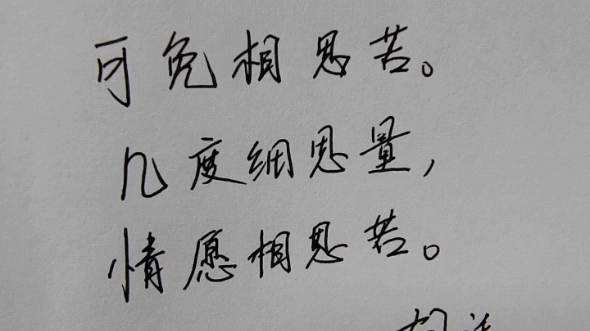 可免相思苦。
几度细思量，
情愿相思苦。